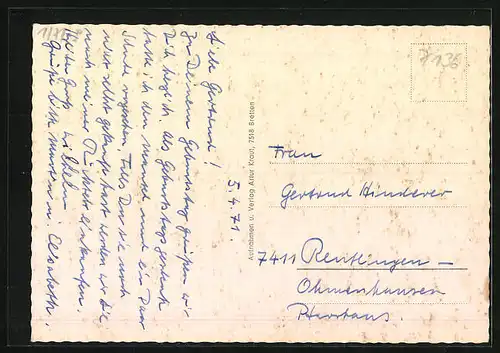 Liebe Gertrud!
Zu Deinem Geburtstag grüßen wir
Dich herzlich. Als Geburtstagsgeschenk
hatte ich den ... und ein Paar
Schuhe vorgesehen. Falls Du sie noch
nicht selbst gekauft hast wollen wir die
nach meiner Rückkehr einkaufen.
Herzl. Gruß Wilhelm
Grüße bitte Martin u. Elisabeth.
5.4.71.
Aufnahmen u. Verlag Artur Kraut, 7518 Bretten
7136
Frau
Gertrud Hinderer
7411 Reutlingen –
Ohmenhausen
Pfarrhaus.